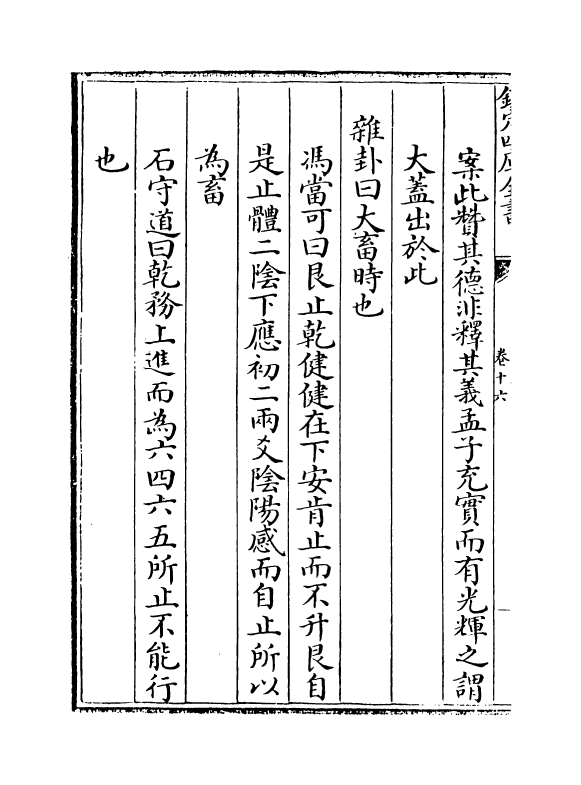 欽定四庫全書
卷十六
案此贊其德非釋其義孟子充實而有光輝之謂
大蓋出於此
雜卦曰大畜時也
馮當可曰艮止乾健健在下安肯止而不升艮自
是止體二陰下應初二兩爻陰陽感而自止所以
為畜
石守道曰乾務上進而為六四六五所止不能行
也